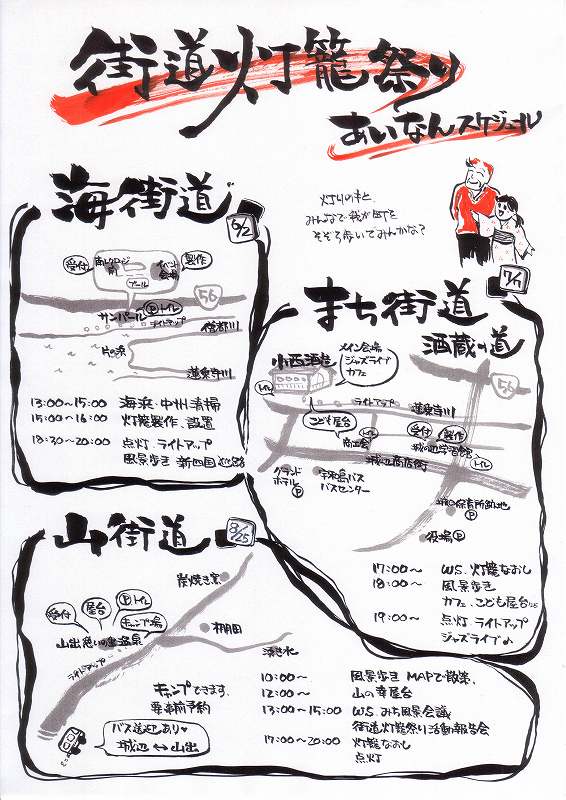 街道灯籠祭り
あいなんスケジュール
灯りのもと
みんなで我が町を
そぞろ歩いてみんかな?
海街道
6/2
受付
前
イベント
会場
製作
プール
サンパール
P トイレ
56
ライトアップ
僧都川
蓮乗寺川
13:00〜15:00 海浜・中州清掃
15:00〜16:00 灯籠製作、設置
18:30〜20:00 点灯、ライトアップ
風景歩き 新四国
まち街道
酒蔵の道
小西酒造
メイン会場
ジャズライブ
カフェ
56
トイレ
ライトアップ
蓮乗寺川
こども屋台
商工会
トイレ
受付
製作
城の辺学習館
トイレ
城辺商店街
グランド
ホテル P
宇和島バス
バスセンター
P
役場 P
17:00〜 W.S. 灯籠なおし
18:00〜 風景歩き
カフェ、こども屋台
19:00〜 点灯 ライトアップ
ジャズライブ
山街道
8/25
炭焼き窯
受付
屋台
P トイレ
キャンプ場
山出憩いの里温泉
棚田
ライトアップ
湧き水
キャンプできます。
要事前予約
バス送迎あり
城辺↔山出
10:00〜 風景歩き MAPで散策、
12:00〜 山の幸屋台
13:00〜15:00 W.S. みち風景会議
街道灯籠祭り活動報告会
17:00〜20:00 灯籠なおし
点灯